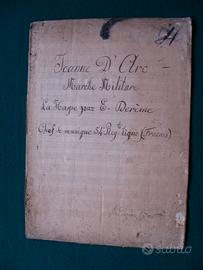 Jeanne D'Arc
Marche Militare
La Harpe par E. Derême
Chef de musique 34 Reg.t ligne (Français)
subito